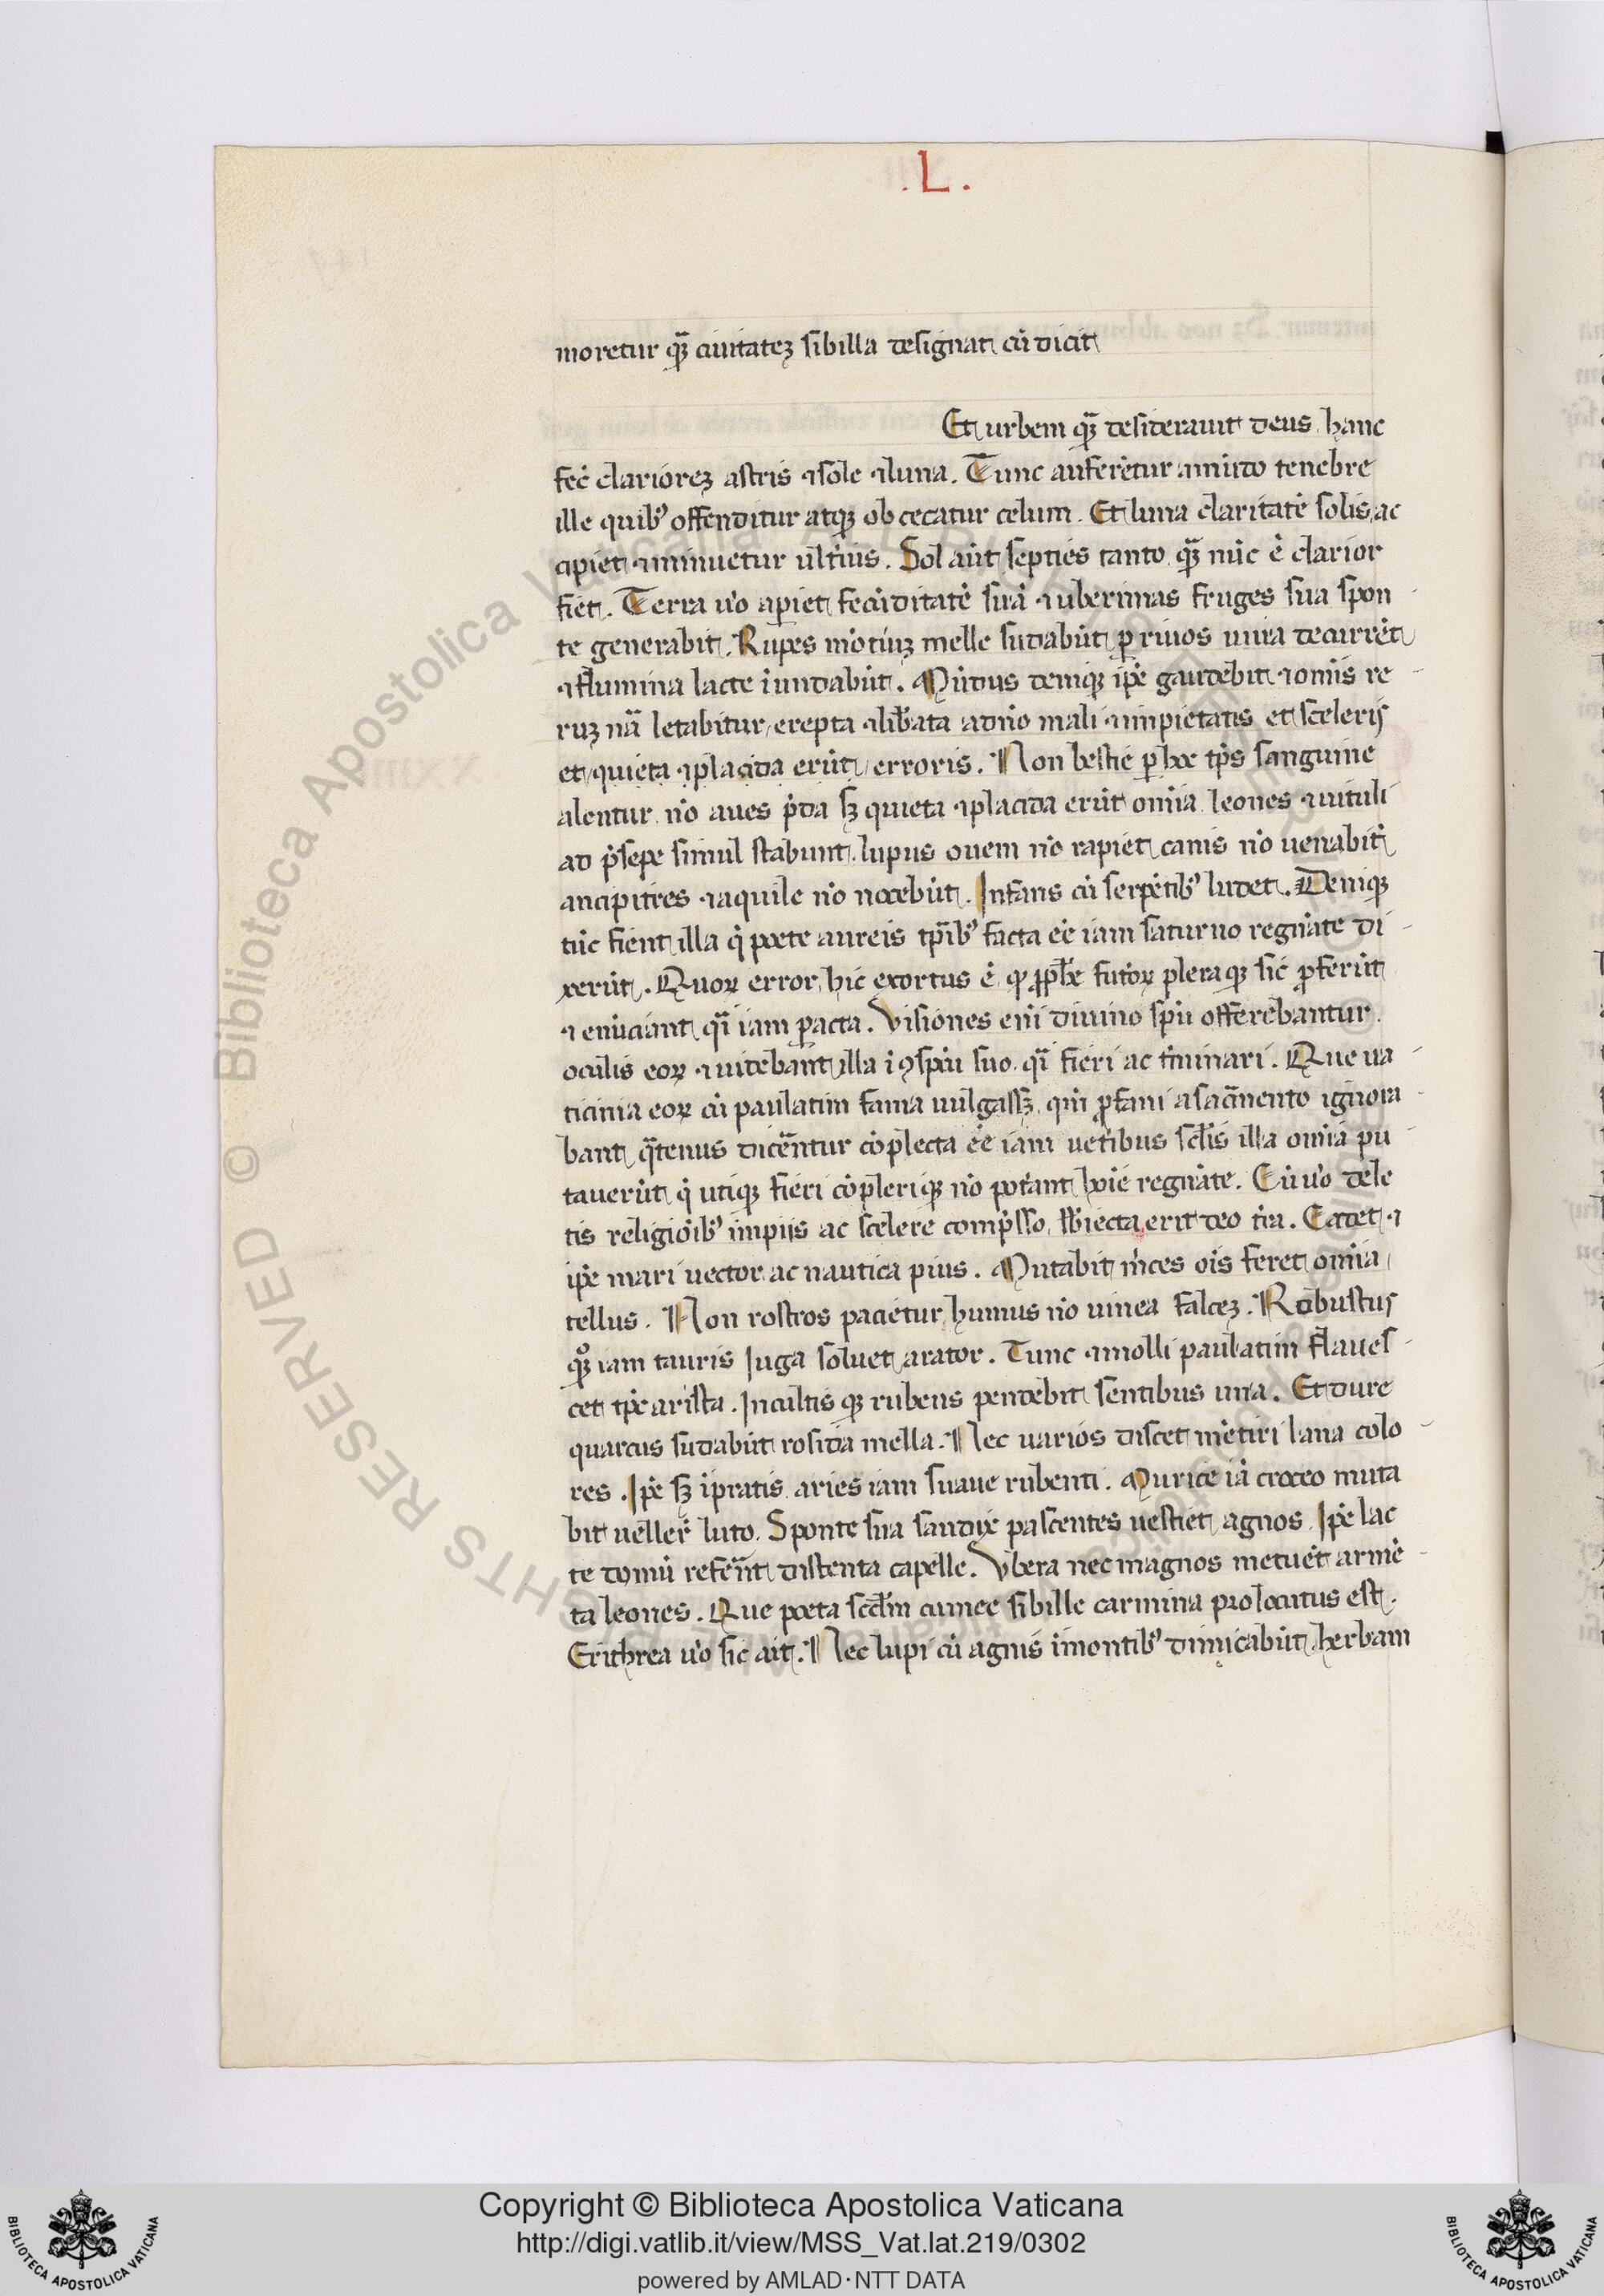 .L.
moretur quā ciuitateꝫ sibilla designat cū dicit
Et urbem quā desiderauit deus hanc
fec̄ clarioreꝫ astris ⁊ sole ⁊ luna. Tunc auferētur a mūdo tenebre
ille quibꝰ offenditur atqꝫ obcecatur celum. Et luna claritatē solis ac
cipiet ⁊ minuetur ult̄ius. Sol aūt septies tanto quā nūc ē clarior
fiet. Terra u̔o apiet fecūditatē suā ⁊ uberrimas fruges sua spon
te generabit. Rupes mōtiuꝫ melle sudabūt ꝑ riuos uina decurrēt
⁊ flumina lacte īundabūt. Mūdus deniqꝫ ip̄e gaudebit ⁊ om̄is re
ruꝫ nā letabitur erepta ⁊ lib̄ata a dn̄o mali ⁊ impietatis et sceleris
et quieta ⁊ placida erūt erroris. Non bestie ꝑ hoc tp̄s sanguine
alentur nō aues p̄da sꝫ quieta ⁊ placida erūt om̄ia leones ⁊ uituli
ad p̄sepe simul stabunt. lupus ouem nō rapiet canis nō uenabit̄
ancipitres ⁊ aquile nō nocebūt. Infans cū serpētibꝰ ludet. Deniqꝫ
tūc fient illa q̄ poete aureis tp̄ibꝰ facta eē iam saturno regnāte di
xerūt. Quoꝝ error hic exortus ē qꝫ ꝓph̄e futōꝝ pleraqꝫ sic ꝓferūt
⁊ enūciant q̄i iam ꝑacta. Visiones eni̅ diuino sp̄u offerebantur
oculis eoꝝ ⁊ uidebant illa ī ꝯspc̄u suo q̄i fieri ac t̄minari. Que ua
ticinia eoꝝ cū paulatim fama uulgassꝫ qm̄ ꝓfani a sac̄mento ignora
bant q̄tenus dicerentur cōplecta eē iam uet̄ibus sc̄lis illa om̄ia pu
tauerūt q̄ utiqꝫ fieri cōpleriqꝫ nō pot̄ant hoīe regnāte. Cū u̔o dele
tis religiōibꝰ impijs ac scelere comp̄sso sb̄iecta erit deo t̄ra. Cedet ⁊
ip̄e mari uector ac nautica pius. Mutabit m̄ces ois feret om̄ia
tellus. Non rostros pacietur humus nō uinea falceꝫ. Robustus
qqꝫ iam tauris Iuga soluet arator. Tunc ⁊ molli paulatim flaues
cet tp̄e arista. Incultis qꝫ rubens pendebit sentibus uua. Et dure
quarcus sudabūt rosida mella. Nec uarios discet mētiri lana colo
res. Ip̄e sꝫ ī pratis aries iam suaue rubenti. Murice iā croceo muta
bit uellera luto. Sponte sua sandix pascentes uestiet agnos. Ip̄e lac
te domū referent distenta capelle. Vbera nec magnos metuēt armē
ta leones. Que poeta scd̄m cumee sibille carmina prolocutus est.
Erithrea u̔o sic ait. Nec lupi cū agnis ī montibꝰ dimicabūt herbam
Copyright © Biblioteca Apostolica Vaticana
http://digi.vatlib.it/view/MSS_Vat.lat.219/0302
powered by AMLAD·NTT DATA